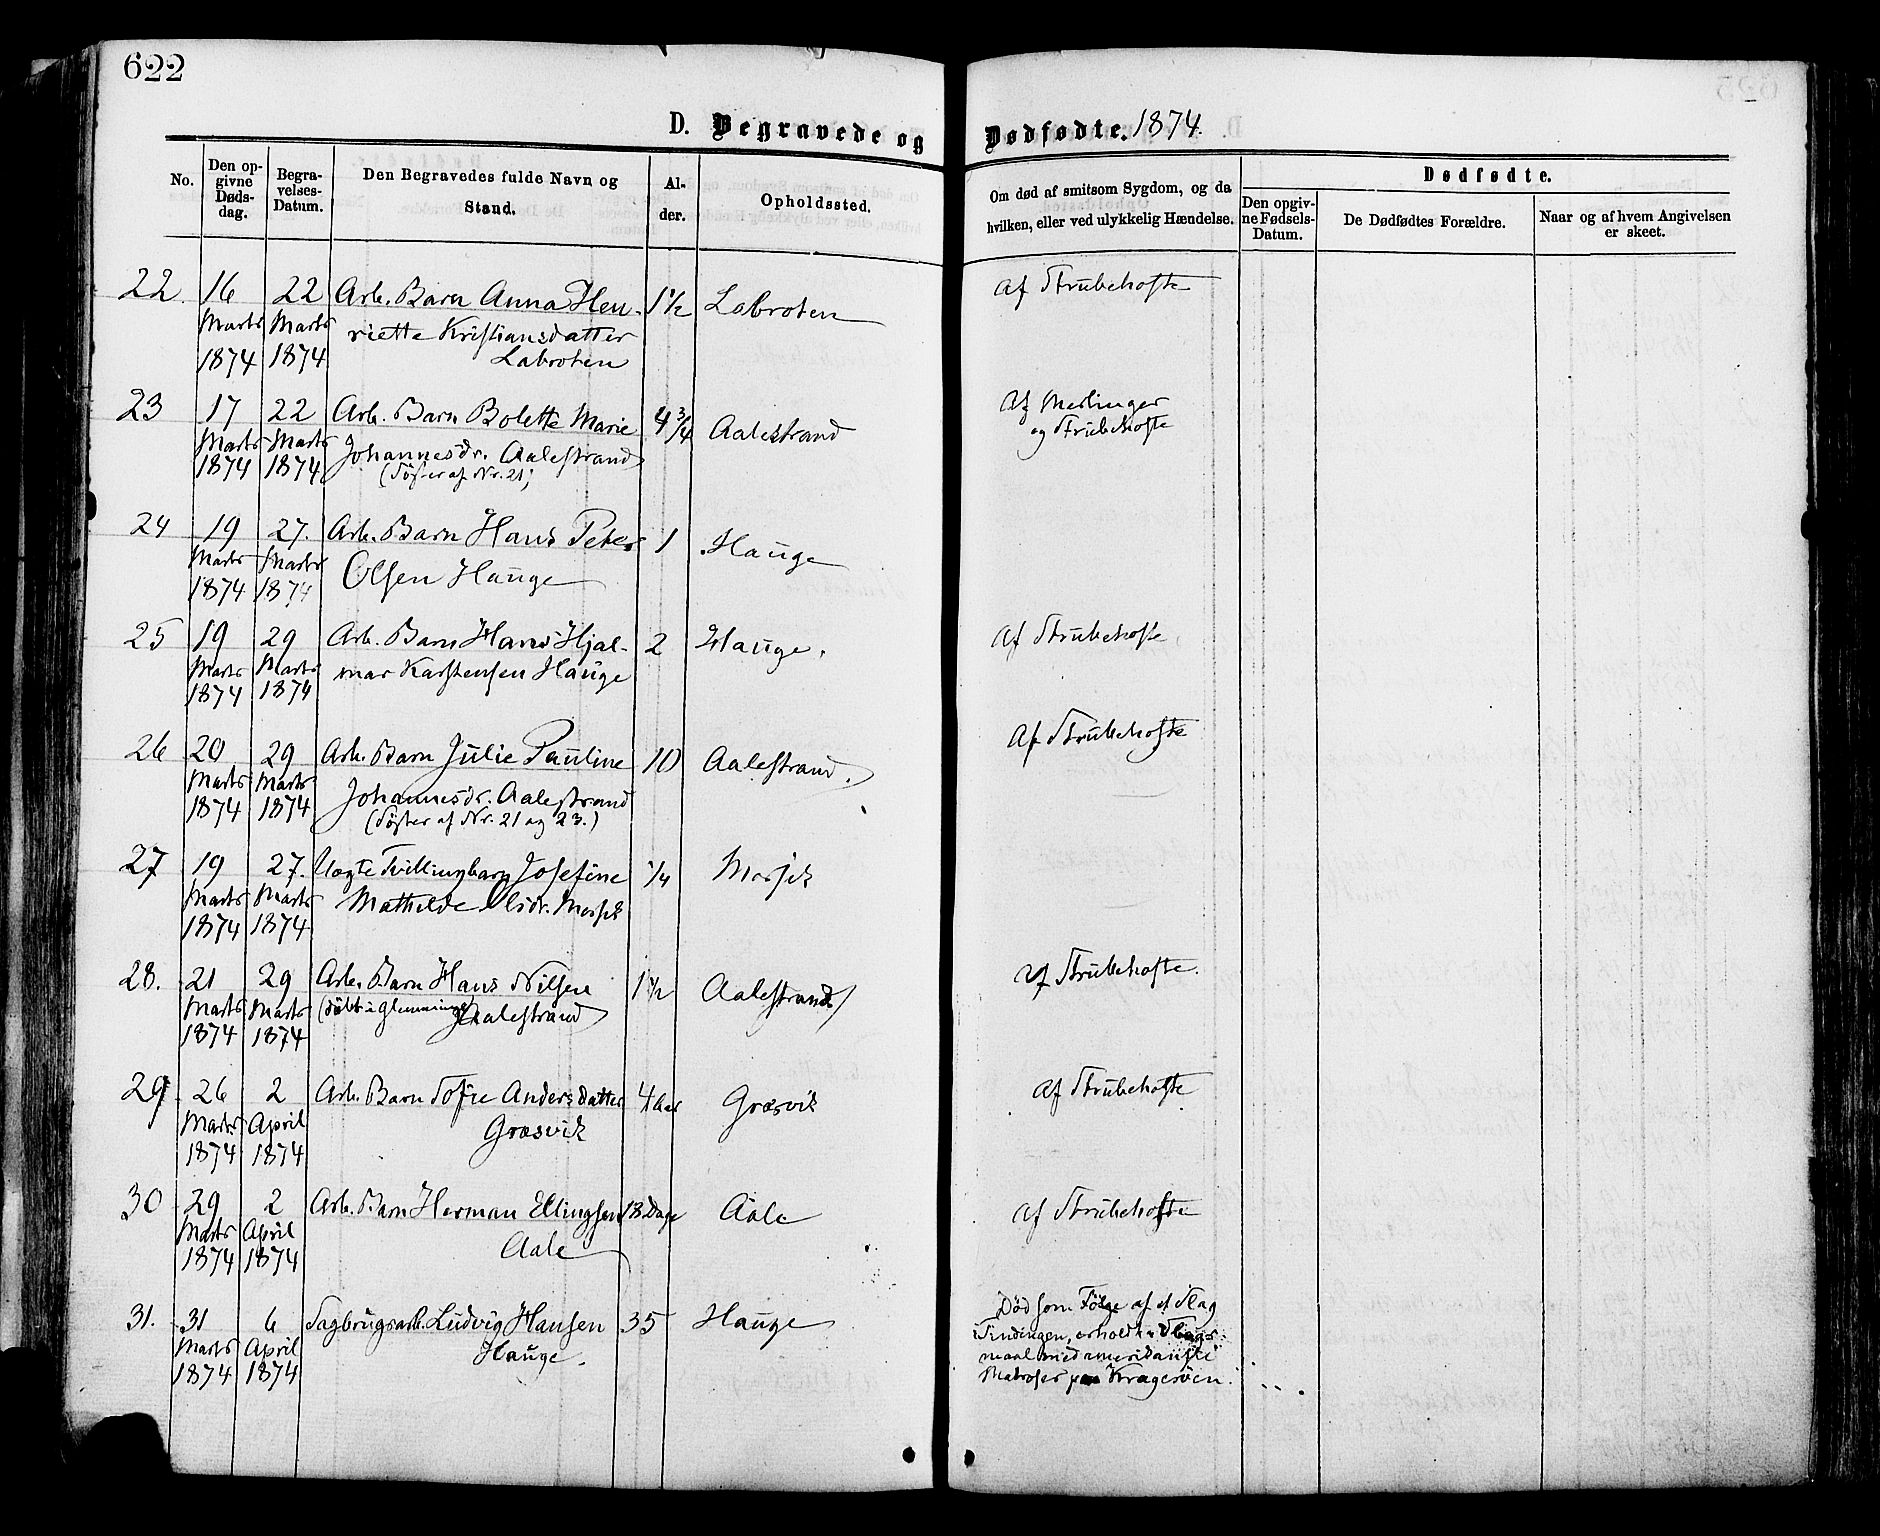 622
D. Begravede og Dødfødte. 1874.
No.
Den opgivne Dødsdag.
Begravelses-Datum.
Den Begravedes fulde Navn og Stand.
Alder.
Opholdssted.
Om død af smitsom Sygdom, og da hvilken, eller ved ulykkelig Hændelse.
Dødfødte.
Den opgivne Fødsels-Datum.
De Dødfødtes Forældre.
Naar og af hvem Angivelsen er skeet.
22. 16 22 Arb. Barn Anna Hen- 1 1/2 Labroten Af Strubehoste
Marts Marts riette Kristiansdatter
1874 1874 Labroten
23 17 22 Arb. Barn Bolette Marie 4 3/4 Aalestrand Af Meslinger
Marts Marts Johannesdr. Aalestrand og Strubehoste
1874 1874 (Søster af Nr. 21;
24 19 27. Arb. Barn Hans Peter 1 Hauge
Marts Marts Olsen Hauge
1874 1874
25 19 29 Arb. Barn Hans Hjal- 2 Hauge. Af Strubehoste
Marts Marts mar Karstensen Hauge
1874 1874
26 20 29 Arb. Barn Julie Pauline 10 Aalestrand. Af Strubehoste
Marts Marts Johannesdr. Aalestrand
1874 1874 (Søster af Nr. 21 og 23.)
27 19 27. Uægte Tvillingbarn Josefine 1/4
Marts Marts Mathilde Olsdr.
1874 1874
28. 21 29 Arb. Barn Hans Nilsen 1 1/2 Aalestrand Af Strubehoste.
Marts Marts (døbt i Glemminge) Aalestrand
1874 1874
29 26 2 Arb. Barn Sofie Andersdatter 4 Aar Græsvik Af Strubehoste
Marts April Græsvik
1874 1874
30 29 2 Arb. Barn Herman Ellingsen 18 Dage Aale Af Strubehoste
Marts April Aale
1874 1874
31. 31 6 Sagbrugsarb. Ludvig Hansen 35 Hauge Død som Følge af et Slag
Marts April Hauge. i Tindingen, erholdt i Slags-
1874 1874 maal med amerikanske
Matroser paa Kragerøen.